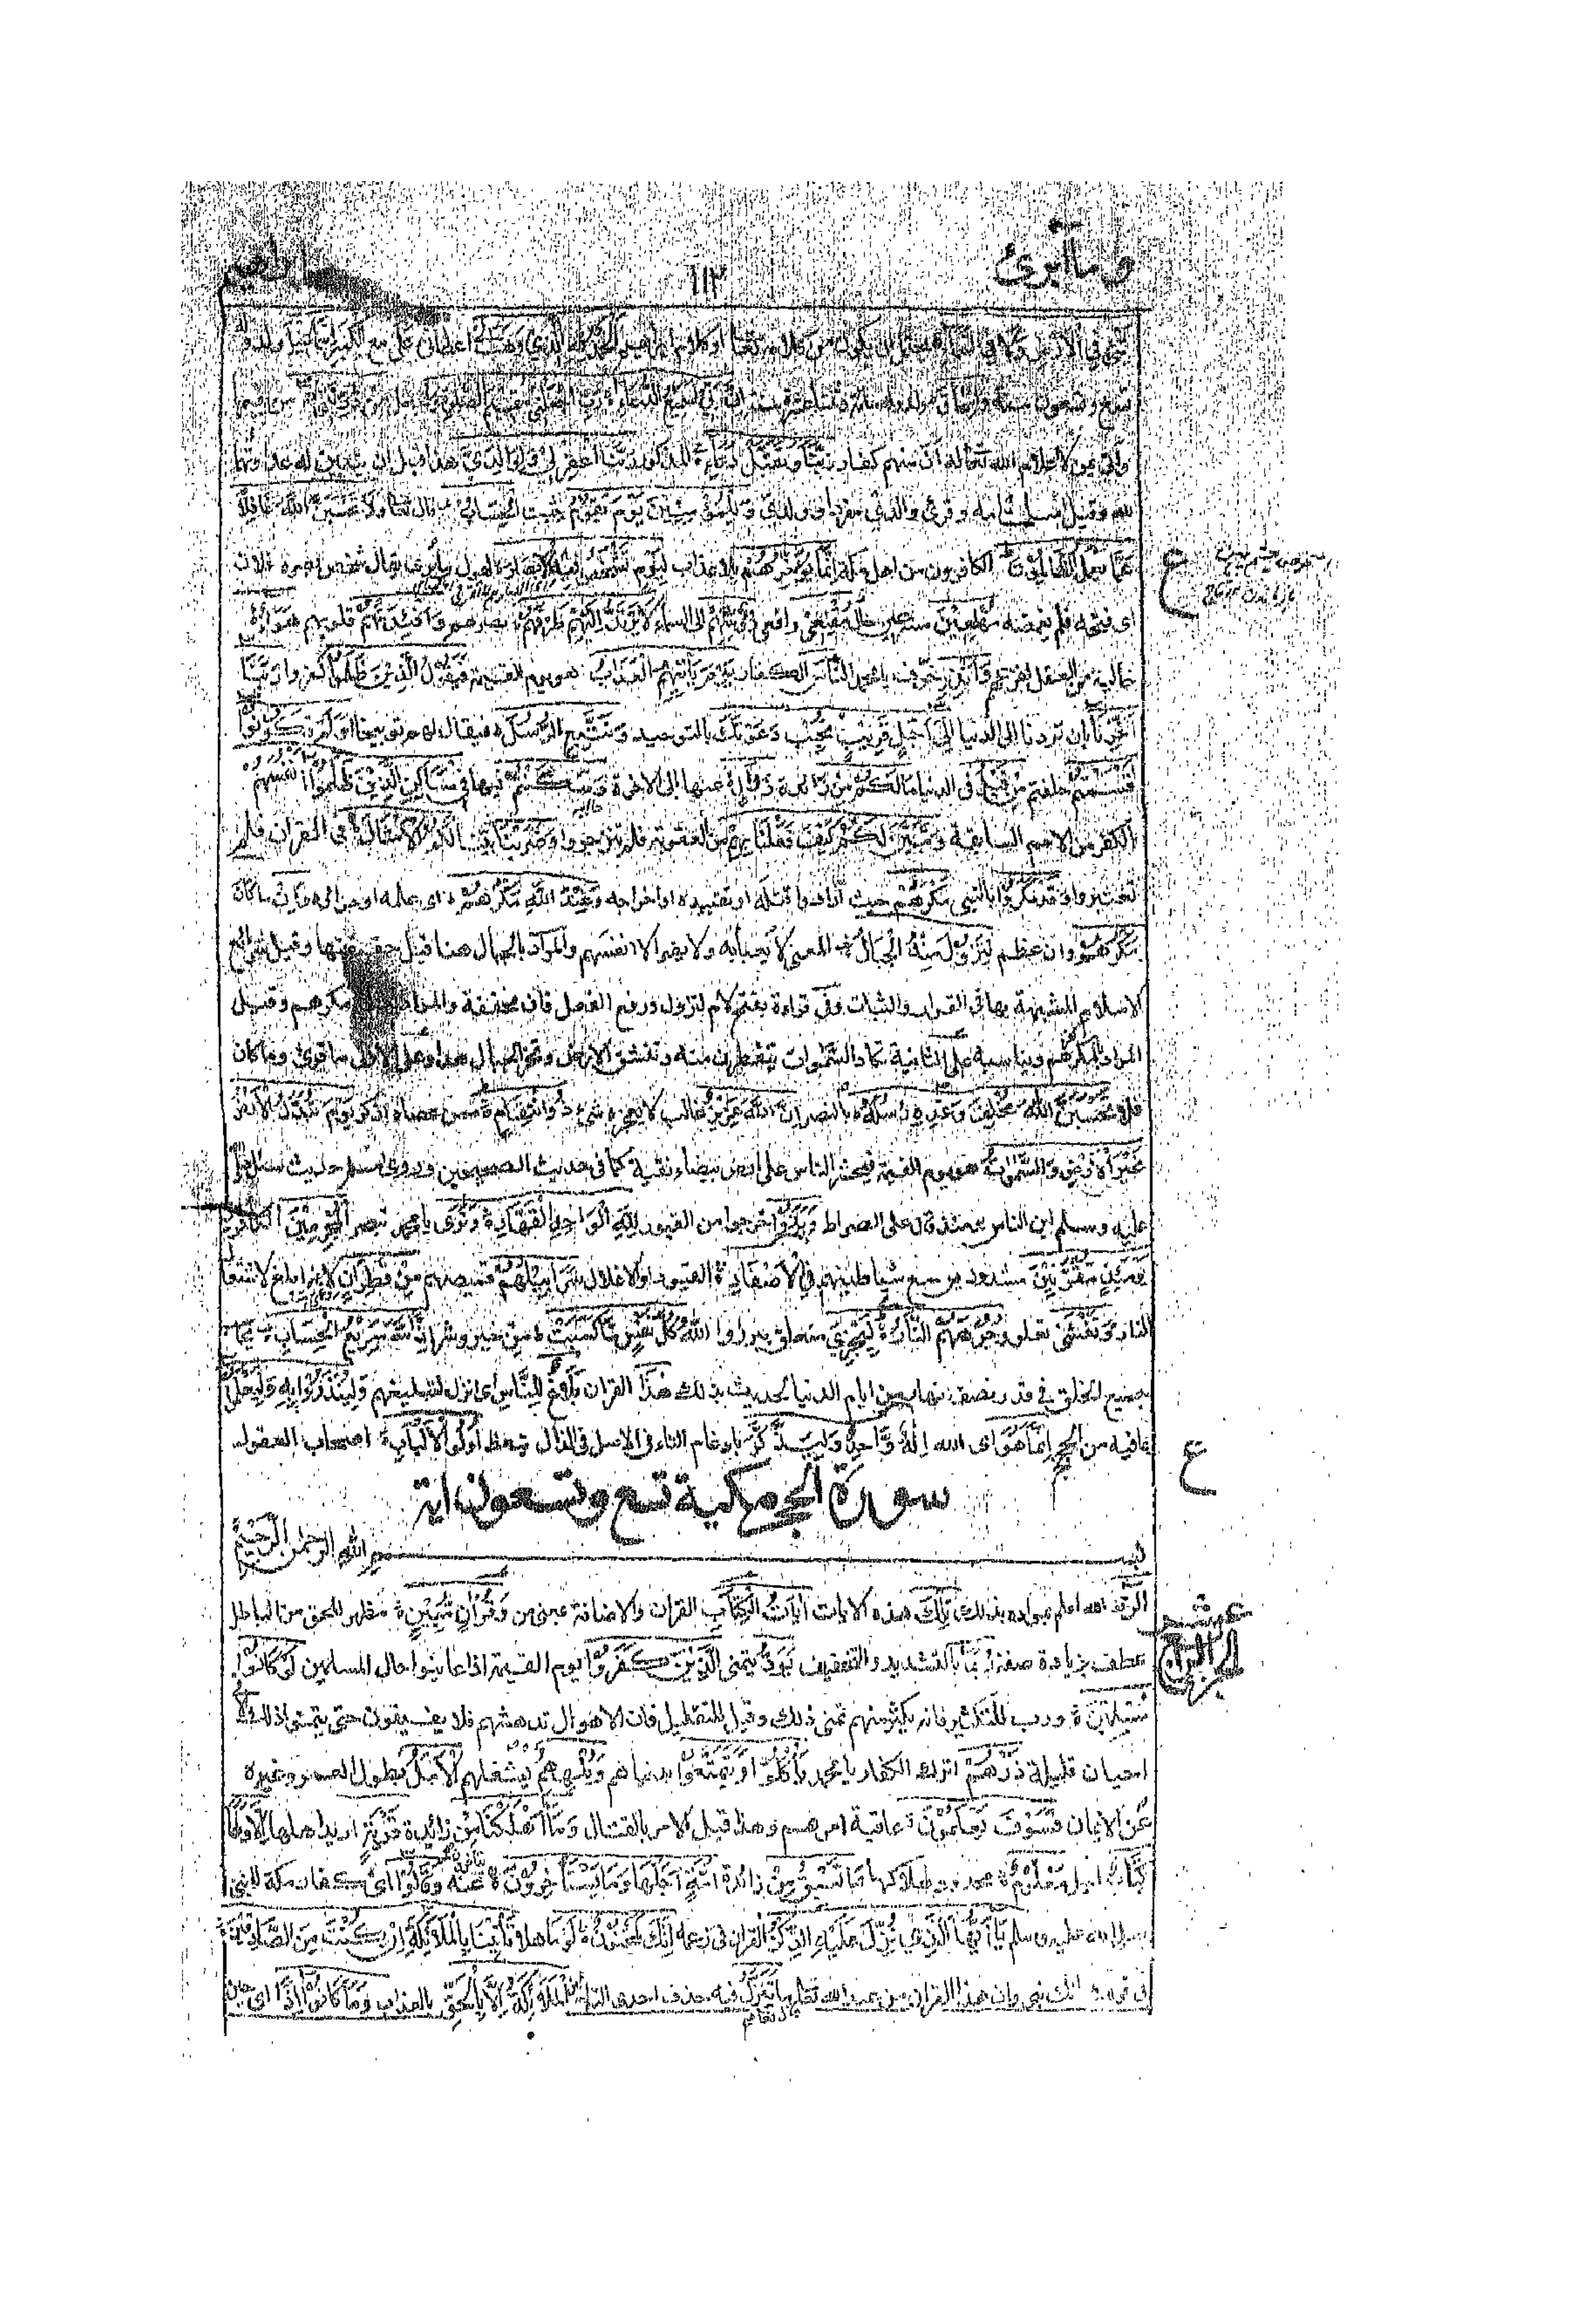 وما أبرئ ١١٢ ابراهيم
شيء في الأرض ولا في السماء يحتمل ان يكون من كلامه تعالى او كلام ابراهيم الحمد لله الذي وهب لي اعطاني على مع الكبر اسمعيل ولد وله
تسع وتسعون سنة واسحاق ولد وله مائة وثنتا عشرة سنة ان ربي لسميع الدعاء رب اجعلني مقيم الصلوة و اجعل من ذريتي من يقيمها
واتى بمن لاعلام الله تعالى له ان منهم كفارا ربنا وتقبل دعاء المذكور ربنا اغفر لي ولوالدي هذا قبل ان يتبين له عداوتهما
لله وقيل اسلمت امه وقرئ والدي مفردا وولدي وللمؤمنين يوم يقوم يثبت الحساب قال تعالى ولا تحسبن الله غافلا
عما يعمل الظالمون الكافرون من اهل مكة انما يؤخرهم بلا عذاب ليوم تشخص فيه الابصار لهول ما ترى يقال شخص بصره فلان
اى فتحه فلم يغمضه مهطعين مسرعين حال مقنعي رافعي رؤسهم الى السماء لا يرتد اليهم طرفهم بصرهم وافئدتهم قلوبهم هواء
خالية من العقل لفزعهم وانذر خوف يا محمد الناس الكفار يوم يأتيهم العذاب هو يوم القيمة فيقول الذين ظلموا كفروا ربنا
اخرنا بان تردنا الى الدنيا الى اجل قريب نجب دعوتك بالتوحيد ونتبع الرسل فيقال لهم توبيخا اولم تكونوا
اقسمتم حلفتم من قبل في الدنيا ما لكم من زائدة زوال عنها الى الاخرة وسكنتم فيها في مساكن الذين ظلموا انفسهم
بالكفر من الامم السابقة وتبين لكم كيف فعلنا بهم من العقوبة فلم تنزجروا وضربنا بينا لكم الامثال في القران فلم
تعتبروا وقد مكروا بالنبي مكرهم حيث ارادوا قتله او تقييده او اخراجه وعند الله مكرهم اى علمه او جزاؤه وان ما كان
مكرهم وان عظم لتزول منه الجبال المعنى لا يعبأ به ولا يضر الا انفسهم والمراد بالجبال هنا قيل حقيقتها وقيل شرائع
الاسلام المشبهة بها في القرار والثبات وفي قراءة بفتح لام لتزول ورفع الفعل فان مخففة والمراد تعظيم مكرهم وقيل
المراد بالمكر كفرهم ويناسبه على الثانية تكاد السموات يتفطرن منه وتنشق الارض وتخر الجبال هدا وعلى الاول ما قرئ وما كان
فلا تحسبن الله مخلف وعده رسله بالنصر ان الله عزيز غالب لا يعجزه شيء ذو انتقام ممن عصاه اذكر يوم تبدل الارض
غير الارض والسموات هو يوم القيمة فيحشر الناس على ارض بيضاء نقية كما في حديث الصحيحين وروى مسلم حديث سئل
عليه وسلم اين الناس يومئذ قال على الصراط وبرزوا خرجوا من القبور لله الواحد القهار وترى يا محمد تبصر المجرمين الكافرين
يومئذ مقرنين مشدودين مع شياطينهم في الاصفاد القيود او الاغلال سرابيلهم قمصهم من قطران لانه ابلغ لاشتعال
النار وتغشى تعلو وجوههم النار ليجزي متعلق ببرزوا الله كل نفس ما كسبت من خير وشر ان الله سريع الحساب يحاسب
جميع الخلق في قدر نصف نهار من ايام الدنيا لحديث بذلك هذا القران بلاغ للناس اى انزل لتبليغهم ولينذروا به وليعلموا
بما فيه من الحجج انما هو اى الله اله واحد وليذكر بادغام التاء في الاصل في الذال يتعظ اولوا الالباب اصحاب العقول
سورة الحجر مكية تسع وتسعون اية
بسم الله الرحمن الرحيم
الر الله اعلم بمراده بذلك تلك هذه الايات ايات الكتاب القران والاضافة بمعنى من وقران مبين مظهر للحق من الباطل
عطف بزيادة صفة ربما بالتشديد والتخفيف يود يتمنى الذين كفروا يوم القيمة اذا عاينوا حال المسلمين لو كانوا
مسلمين ورب للتكثير فانه يكثر منهم تمنى ذلك وقيل للتقليل فان الاهوال تدهشهم فلا يفيقون حتى يتمنوا ذلك الا
احيان قليلة ذرهم اترك الكفار يا محمد يأكلوا ويتمتعوا بدنياهم ويلههم يشغلهم الامل بطول العمر وغيره
عن الايمان فسوف يعلمون عاقبة امرهم وهذا قبل الامر بالقتال وما اهلكنا من زائدة قرية اريد اهلها الا ولها
كتاب اجل معلوم محدود لهلاكها ما تسبق من زائدة امة اجلها وما يستأخرون عنه وقالوا اى كفار مكة للنبي
صلى الله عليه وسلم يا ايها الذي نزل عليه الذكر القران في زعمه انك لمجنون لو ما هلا تأتينا بالملائكة ان كنت من الصادقين
في قولك انك نبي وان هذا القران من عند الله تعالى ما تنزل فيه حذف احدى التائين الملائكة الا بالحق بالعذاب وما كانوا اذا اى حين
ع
ع